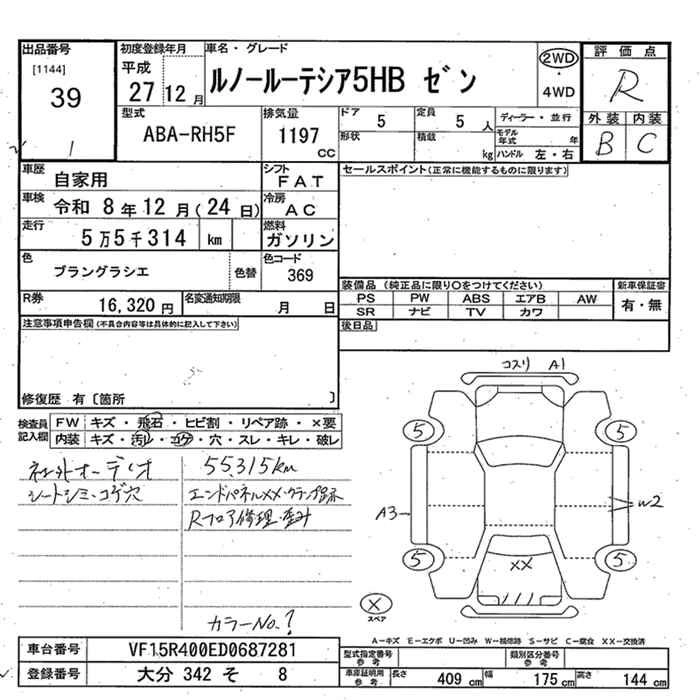 出品番号
[1144]
39
1
初度登録年月
平成
27 12 月
車名・グレード
ルノールーテシア5HB ゼン
2WD
・
4WD
評価点
R
外装 内装
B C
型式
ABA-RH5F
排気量
1197
cc
ドア 5
定員 5 人
形状
積載 kg
ディーラー・並行
モデル年式 年
ハンドル 左・右
車歴
自家用
シフト
FAT
車検
令和 8年 12月(24日)
冷房
AC
走行
5万5千314 km
燃料
ガソリン
色
ブラングラシエ
色替
色コード
369
R券
16,320 円
名変通知期限
月 日
セールスポイント(正常に機能するものに限ります)
装備品 (純正品に限り○をつけてください)
PS PW ABS エアB AW
SR ナビ TV カワ
新車保証書
有・無
後日品
注意事項申告欄(不具合内容等は具体的に記入して下さい)
修復歴 有〔箇所 〕
検査員記入欄
FW キズ・飛石・ヒビ割・リペア跡・×要
内装 キズ・汚レ・コゲ・穴・スレ・キレ・破レ
社外オーディオ
シートシミ・コゲ穴
55,315km
エンドパネルXX・クランプ跡
Rフロア修理・歪み
カラーNo.?
コスリ A1
5 5
A3
W2
5 5
XX
×
スペア
A−キズ E−エクボ U−凹み W−補修跡 S−サビ C−腐食 XX−交換済
車台番号 VF15R400ED0687281
登録番号 大分 342 そ 8
型式指定番号
参考
類別区分番号
参考
車庫証明用
参考
長さ 409 cm
幅 175 cm
高さ 144 cm